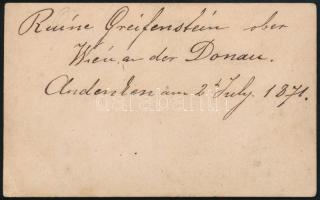 Ruine Greifenstein ober
Wien, a. der Donau.
Andenken am 2t July. 1871.